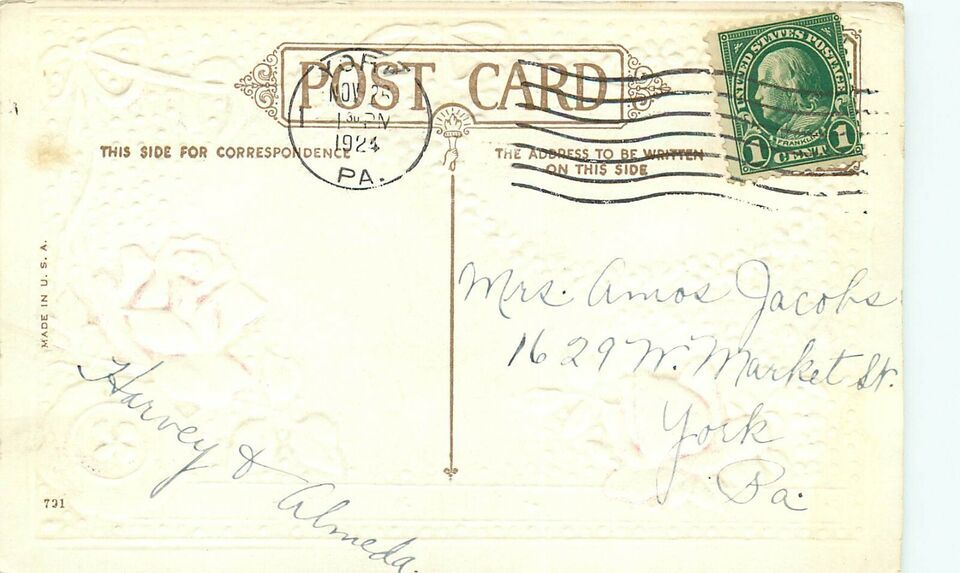 POST CARD
YORK
NOV 25
1 30 PM
1924
PA.
UNITED STATES POSTAGE
FRANKLIN
1 CENT 1
THIS SIDE FOR CORRESPONDENCE
THE ADDRESS TO BE WRITTEN
ON THIS SIDE
MADE IN U. S. A.
Mrs. Amos Jacobs
1629 W. Market St.
York
Pa.
Harvey & Almeda.
791